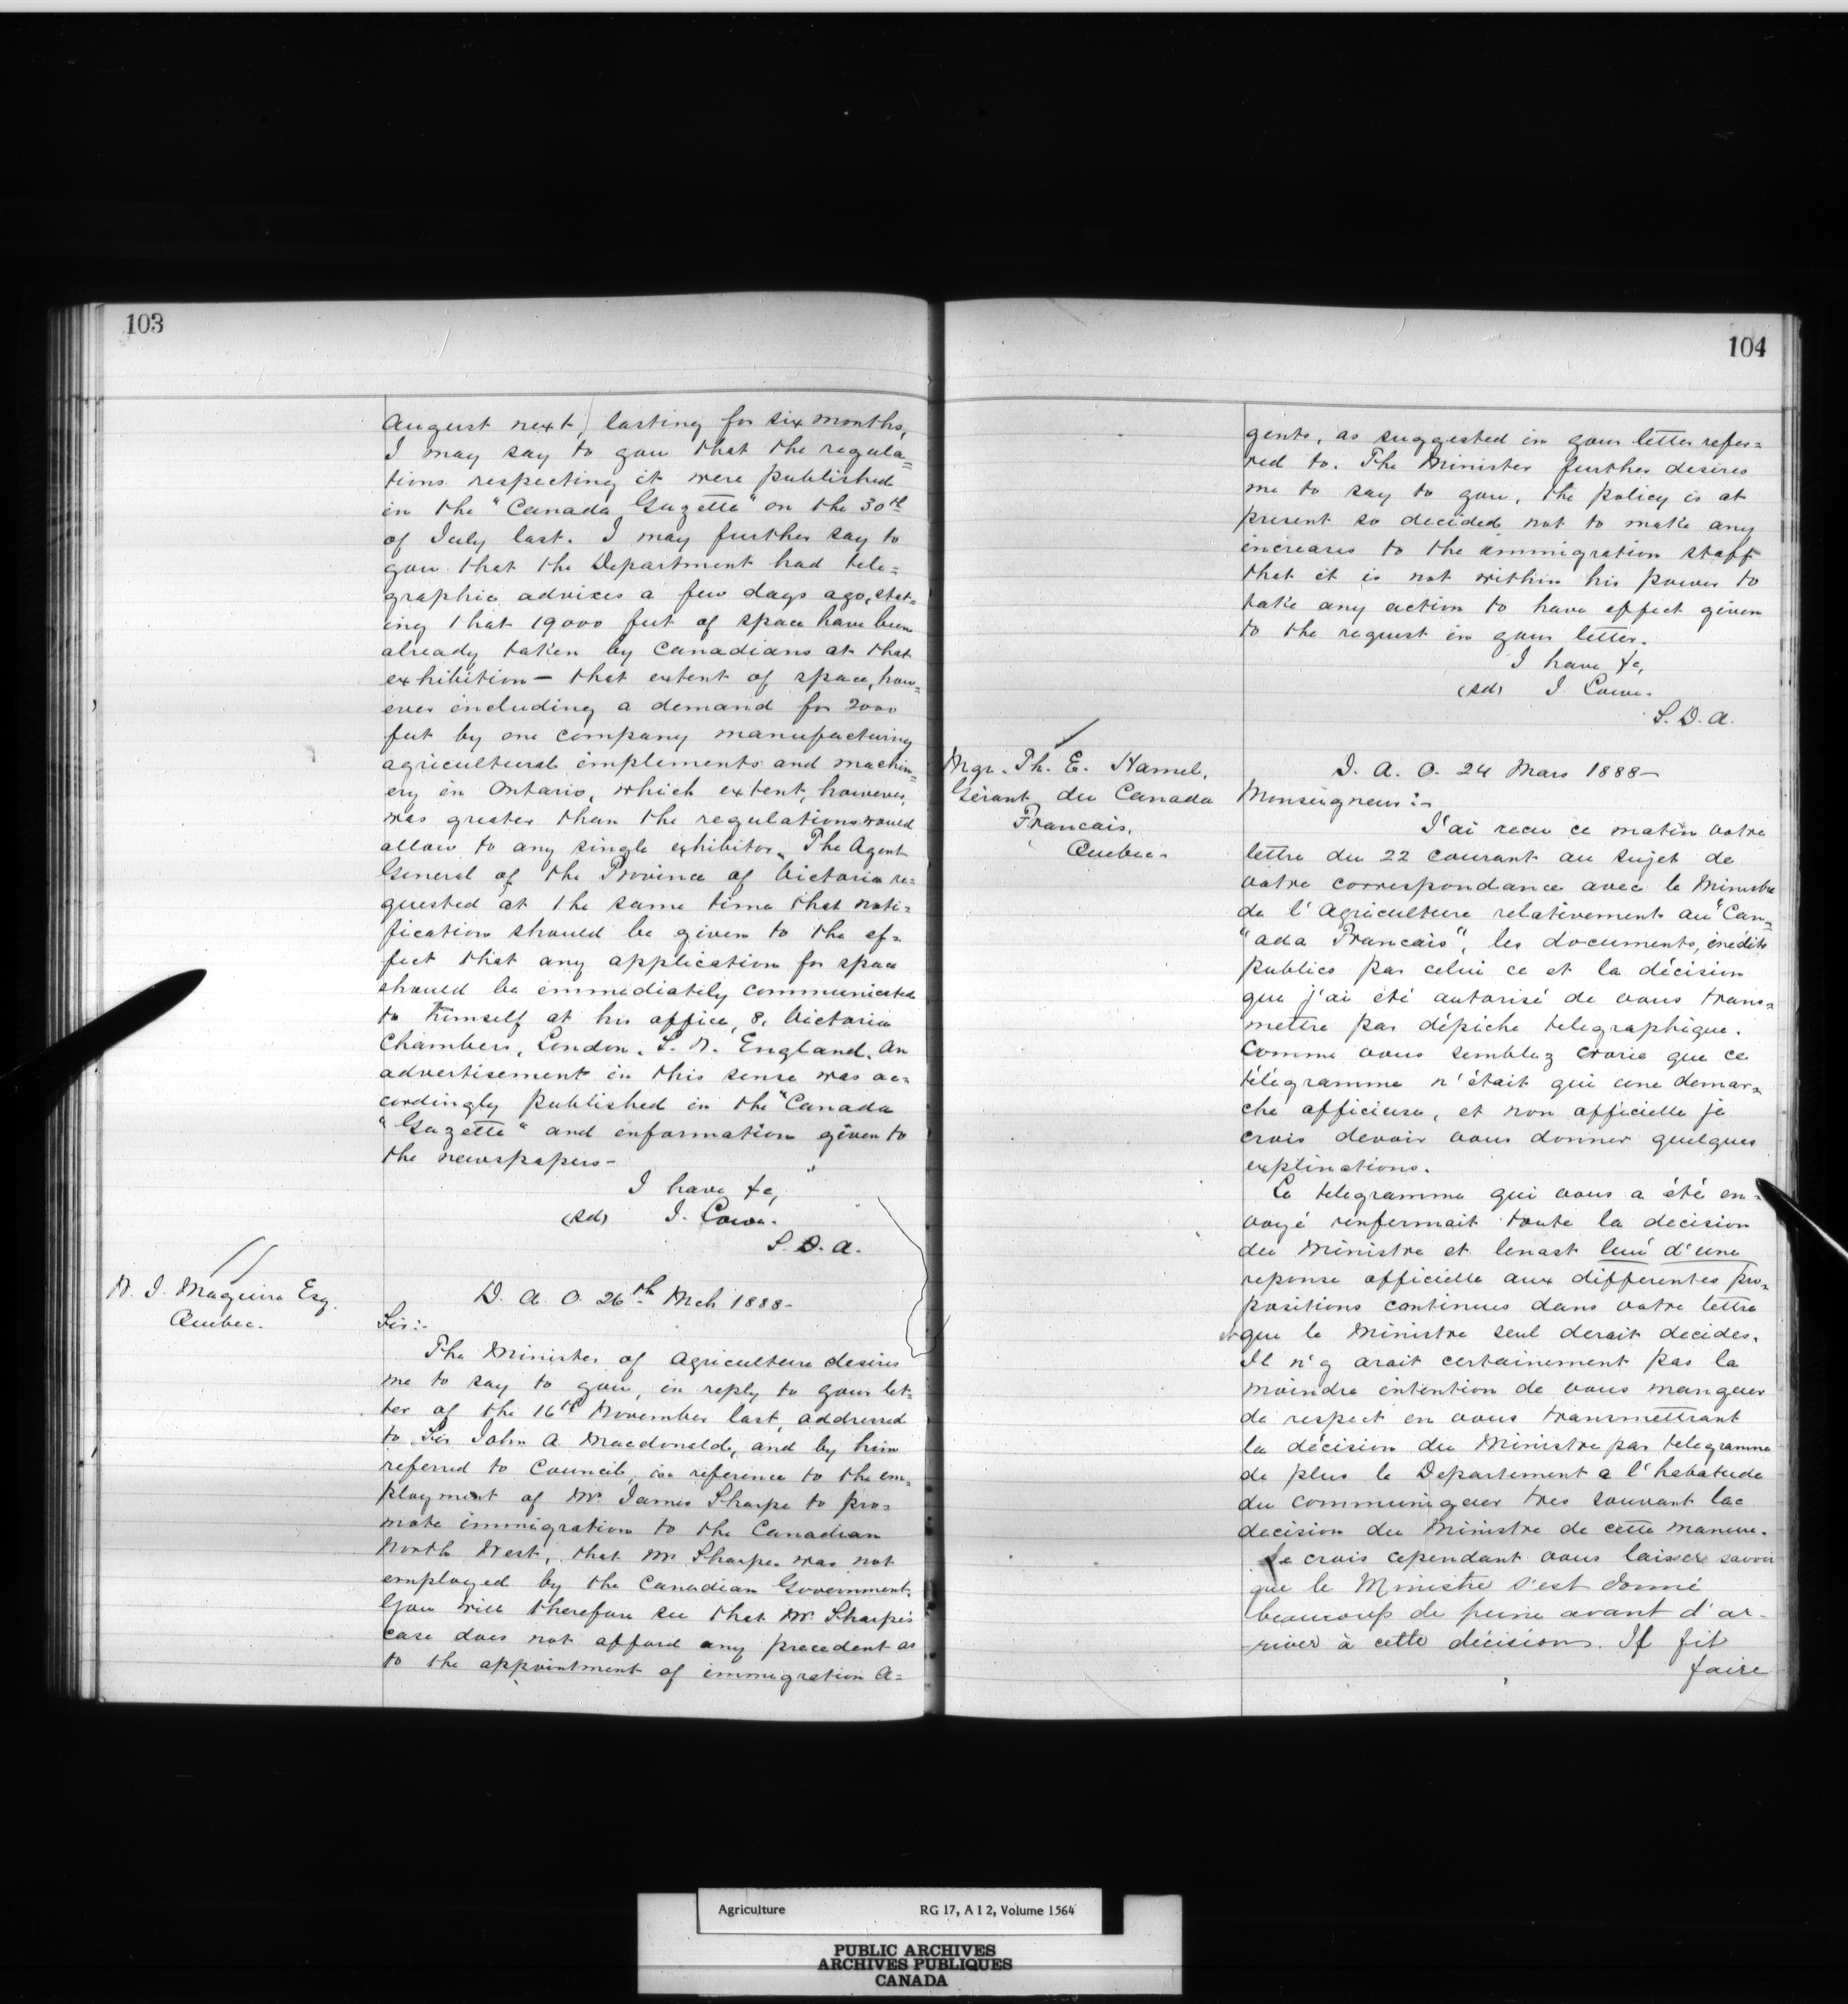 103
August next, lasting for six months,
I may say to you that the regula=
tions respecting it were published
in the "Canada Gazette" on the 30th
of July last. I may further say to
you that the Department had tele=
graphic advices a few days ago, stat=
ing that 19000 feet of space have been
already taken by Canadians at that
exhibition — that extent of space, how=
ever including a demand for 2000
feet by one company manufacturing
agricultural implements and machin=
ery in Ontario, which extent, however,
was greater than the regulations would
allow to any single exhibitor. The Agent
General of the Province of Victoria re=
quested at the same time that noti=
fication should be given to the ef=
fect that any application for space
should be immediately communicated
to himself at his office, 8, Victoria
Chambers, London, S. W. England. An
advertisement in this sense was ac=
cordingly published in the "Canada
"Gazette" and information given to
the newspapers —
I have &c,
(Sd) J. Lowe.
S. D. A.
W. J. Maguire Esq.
Quebec.
D. A. O. 26th Mch 1888 -
Sir:-
The Minister of Agriculture desires
me to say to you, in reply to your let=
ter of the 16th November last, addressed
to Sir John A. Macdonald, and by him
referred to Council, in reference to the em=
ployment of Mr. James Sharpe to pro=
mote immigration to the Canadian
North West, that Mr Sharpe was not
employed by the Canadian Government.
You will therefore see that Mr. Sharpe's
case does not afford any precedent as
to the appointment of immigration A=
104
gents, as suggested in your letter refer=
red to. The Minister further desires
me to say to you, the policy is at
present so decided not to make any
increases to the immigration staff
that it is not within his power to
take any action to have effect given
to the request in your letter.
I have &c,
(Sd) J. Lowe.
S. D. A.
Mgr. Th. E. Hamel,
Gérant du Canada
Francais,
Quebec.
D. A. O. 24 Mars 1888 —
Monseigneur:-
J'ai recu ce matin votre
lettre du 22 courant au sujet de
votre correspondance avec le Ministre
de l'Agriculture relativement au "Can=
"ada Francais", les documents, inédits
publics par celui ce et la décision
que j'ai été autorisé de vous trans=
mettre par dépiche telegraphique.
Comme vous semblez croire que ce
télégramme n'était qui une demar=
che officieuse, et non officielle je
crois devoir vous donner quelques
explinations.
Le telegramme qui vous a été en=
voyé renfermait toute la decision
du Ministre et lenast lieu d'une
reponse officielle aux differentes pro=
positions continues dans votre lettre
et que le Ministre seul devait decider.
Il n'y avait certainement pas la
moindre intention de vous manquer
de respect en vous transmettrant
la décision du Ministre par telegramme
de plus le Departement a l'habatude
du communiquer tres souvant lac
decision du Ministre de cette maniere.
Je crois cependant vous laisser savoir
que le Ministre s'est donné
beaucoup de peine avant d'ar-
-river à cette décision. Il fit
faire
Agriculture RG 17, A I 2, Volume 1564
PUBLIC ARCHIVES
ARCHIVES PUBLIQUES
CANADA